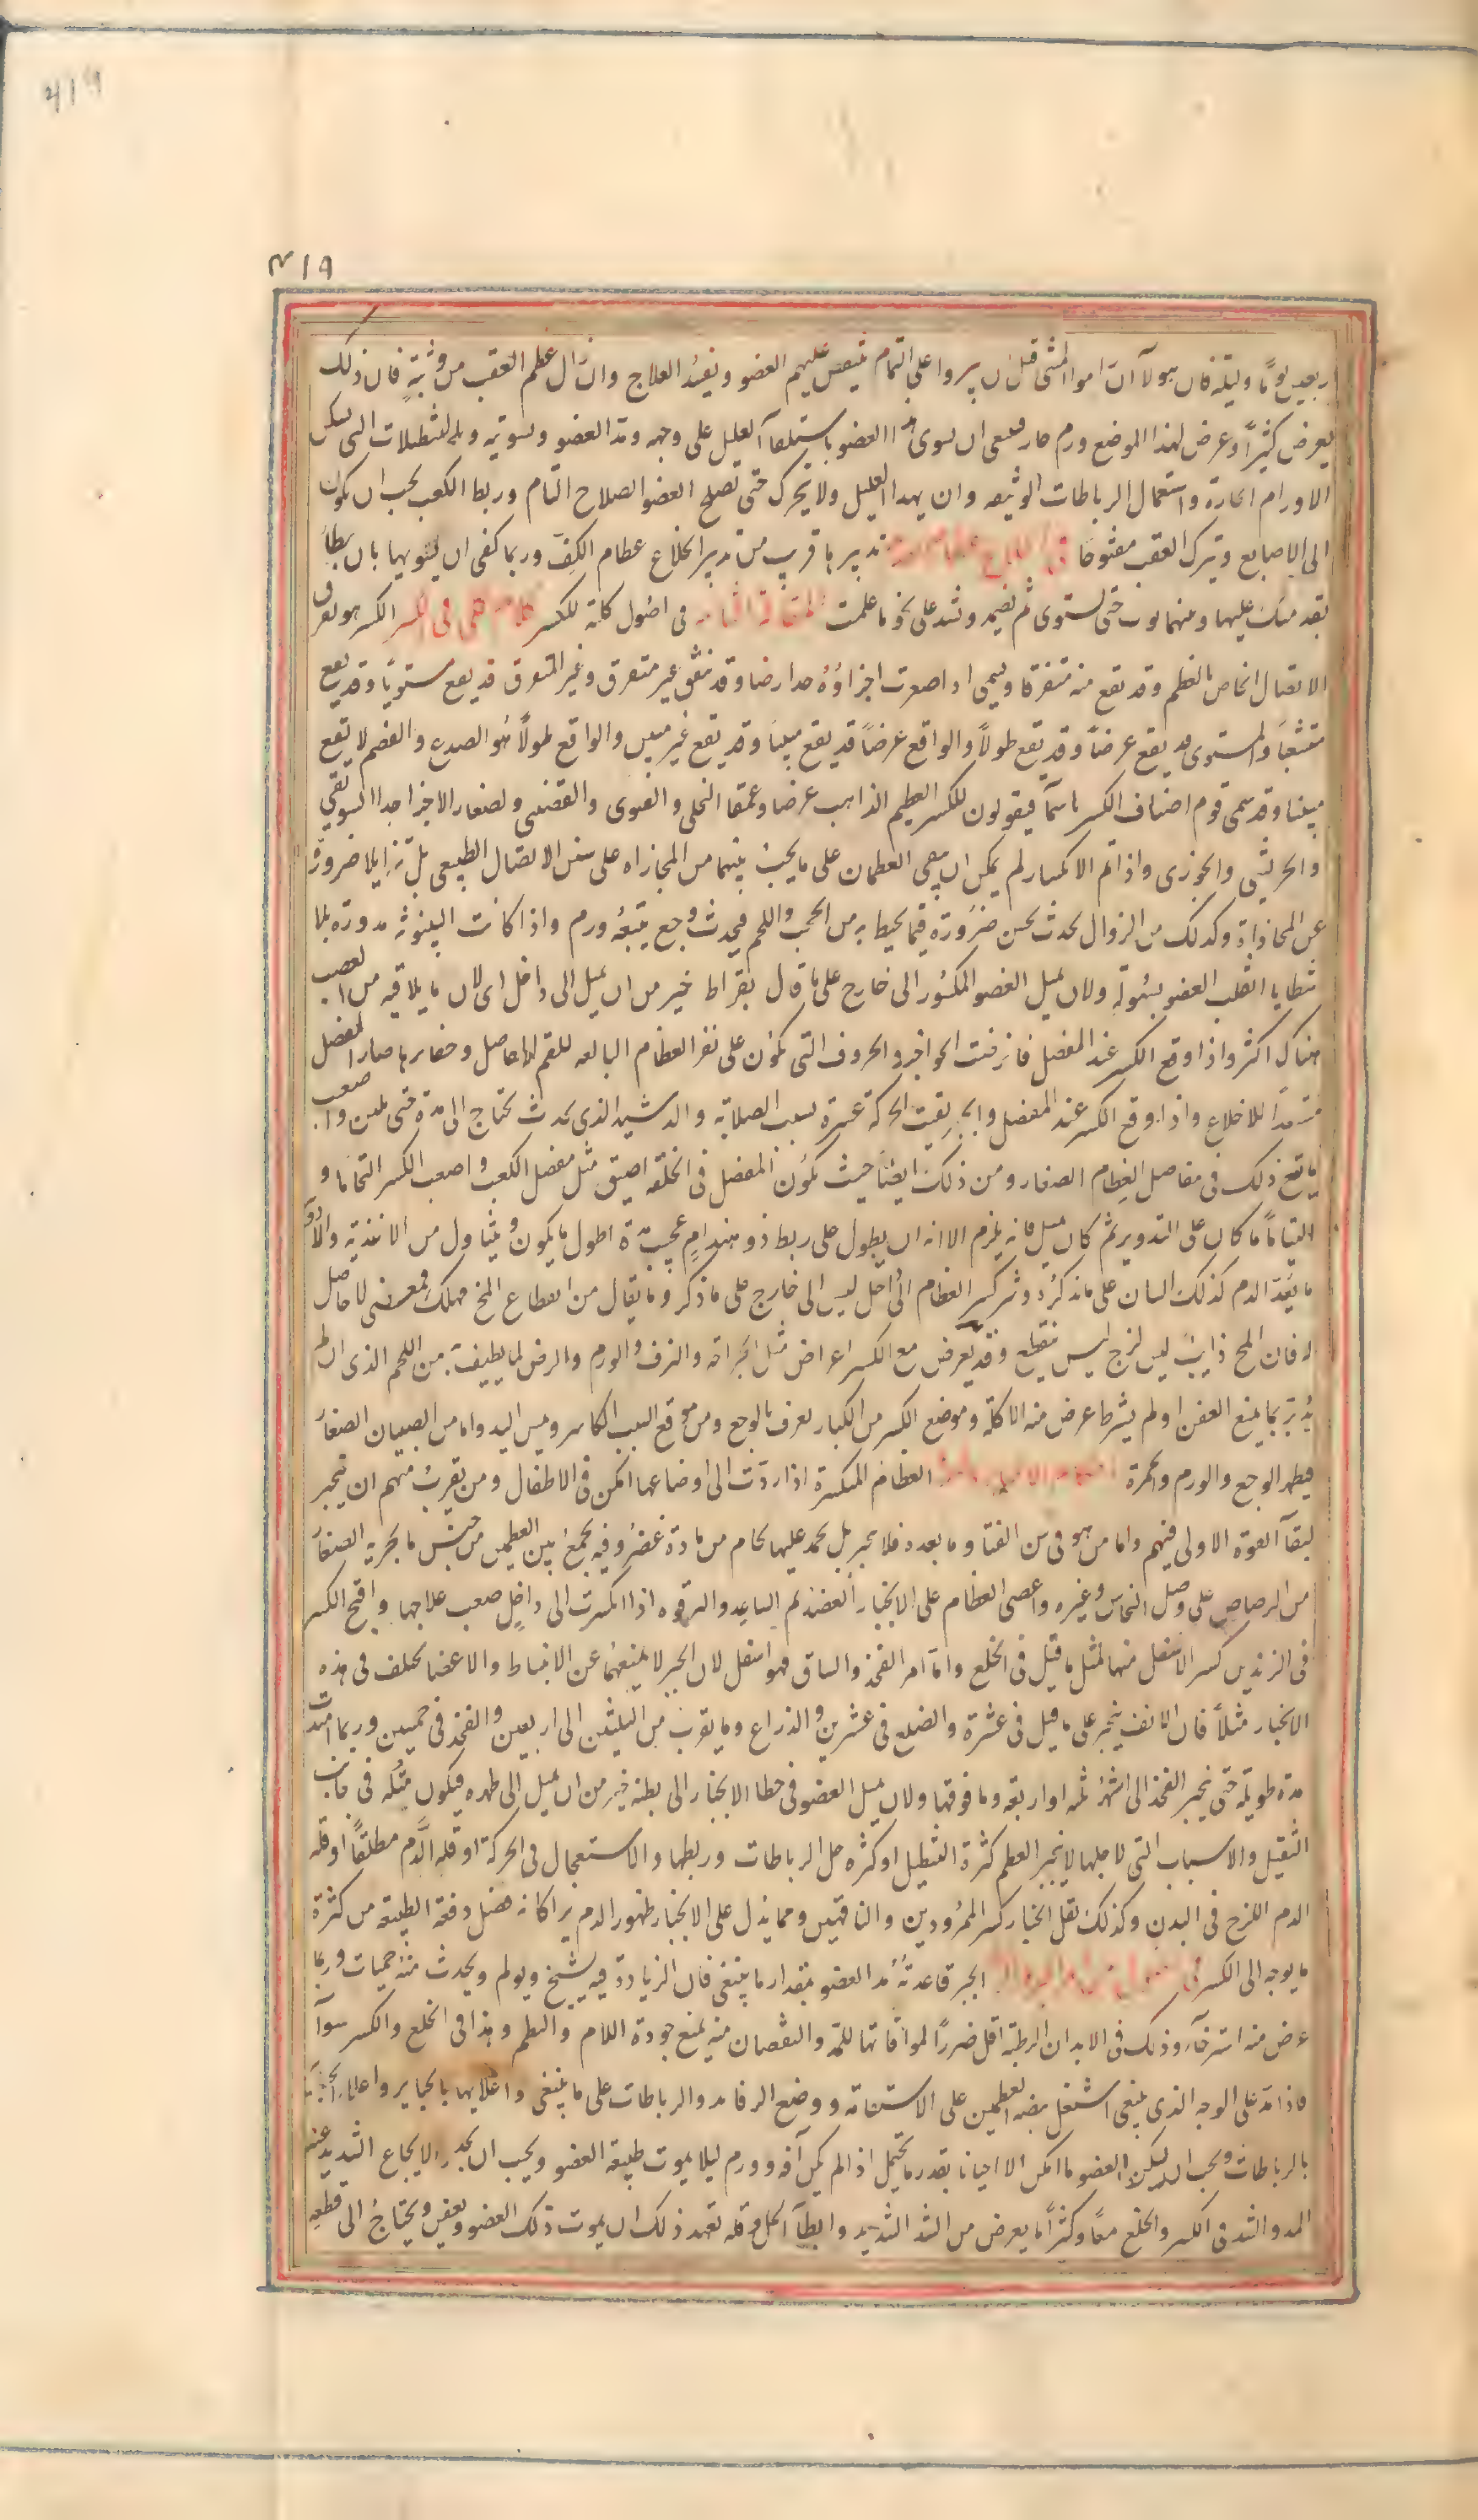 419
٤١٩
اربعين يوما وليلة فان هولآ ان راموا المشى قبل ان يبروا على التمام ينتقص عليهم العضو ويفسد العلاج وان زال عظم العقب من وثبة فان ذلك
يعرض كثيرا وعرض لهذا الموضع ورم حار فينبغى ان يسوى هذا العضو باستلقآ العليل على وجهه ومد العضو وتسويته وبالتنطيلات التى تسكن
الاورام الحارة واستعمال الرباطات الوثيقه وان يهدا العليل ولا يتحرك حتى تصلح العضو الصلاح التام وربط الكعب يجب ان يكون
الى الاصابع وتترك العقب مفتوحا تدبيرها قريب من تدبير انخلاع عظام الكف وربما كفى ان يسويها بان يطأ
بقدميك عليها وبينهما ثوب حتى تستوى ثم تضمد وتشد على نحو ما علمت المقالة الثانيه فى اصول كلية للكسر كلام كلى فى الكسر الكسر هو تفرق
الاتصال الخاص بالعظم وقد يقع منه متفرقا ويسمى اذا صغرت اجزاؤه جدا رضا وقد يتفق غير متفرق وغير المتفرق قد يقع مستويا وقد يقع
متشعبا والمستوى قد يقع عرضا وقد يقع طولا والواقع عرضا قد يقع مبينا وقد يقع غير مبين والواقع طولا هو الصدع والفصم لا يقع
مبينا وقد سمى قوم اصناف الكسر باسمآ فيقولون للكسر العظيم الذاهب عرضا وعمقا الفجلى والقثوى والقضيبى ولصغار الاجزا جدا السويقى
والجريشى والجوزى واذا تم الانكسار لم يمكن ان يبقى العظمان على ما يجب بينهما من المحازاه على سنن الاتصال الطبيعى بل تزايلا ضرورة
عن المحاذاة وكذلك من الزوال يحدث نخس ضرورة فيما يحيط به من الحجب واللحم فيحدث وجع يتبعه ورم واذا كانت البينونة مدورة بلا
شظايا انقلب العضو بسهولة ولان يميل العضو المكسور الى خارج على ما قال بقراط خير من ان يميل الى داخل اى لان ما يلاقيه من العصب
هناك اكثر واذا وقع الكسر عند المفصل فانرضت الحواجز والحروف التى تكون على نقر العظام البالعه للقم المفاصل وحفايرها صار المفصل
مستعدا للانخلاع واذا وقع الكسر عند المفصل وانجبر بقيت الحركة عسرة بسبب الصلابة والدشبد الذى يحدث يحتاج الى مدة حتى يلين واصعب
ما تقع ذلك فى مفاصل العظام الصغار ومن ذلك ايضا حيث تكون المفصل فى الخلقة اضيق مثل مفصل الكعب واصعب الكسر التحاما و
التياما ما كان على التدوير ثم كان ميل فانه يلزم الا انه ان يطول على ربط ذو هندام عجيب مدة اطول ما يكون ويتناول من الاغذية والادوية
ما يغذ الدم كذلك اللسان على ما نذكره وشر كسر العظام الى داخل ليس الى خارج على ما ذكر وما يقال من انقطاع المخ مهلك فمعنى لا حاصل
له فان المخ ذايب ليس لزج ليس ينقطع وقد يعرض مع الكسر اعراض مثل الجراحة والنزف والورم والرض لما يطيف به من اللحم الذى ان لم
يدبر بما يمنع العفن او لم يشرط عرض منه الاكلة وموضع الكسر من الكبار يعرف بالوجع ومن موقع السبب الكاسر ومس اليد واما من الصبيان الصغار
فيظهر الوجع والورم والحمرة العظام المنكسرة اذا ردت الى اوضاعها امكن فى الاطفال ومن يقرب منهم ان ينجبر
لبقآ القوة الاولى فيهم واما من هو فى سن الفتا وما بعده فلا ينجبر بل يجمد عليها لحام من مادة غضروفيه يجمع بين العظمين من جنس ما يجريه الصفار
من الرصاص على وصل النحاس وغيره واعصى العظام على الانجبار العضد ثم الساعد والترقوه اذا انكسرت الى داخل صعب علاجها واقبح الكسر
فى الزندين كسر الاسفل منهما لمثل ما قيل فى الخلع واما امر الفخذ والساق فهو اسفل لان الجبر لا يمنعهما عن الانبساط والاعضا تختلف فى هذه
الانجبار مثلا فان الانف ينجبر على ما قيل فى عشرة والضلع فى عشرين والذراع وما يقرب من الثلثين الى اربعين والفخذ فى خمسين وربما امتدت
مدة طويلة حتى ينجبر الفخذ الى اشهر ثلثه او اربعة وما فوقها ولان يميل العضو فى خطا الانجبار الى بطنه خير من ان يميل الى ظهره فيكون ميله فى جانب
الثقيل والاسباب التى لاجلها لا ينجبر العظم كثرة التنطيل او كثره حل الرباطات وربطها والاستعجال فى الحركة او قلة الدم مطلقا او قلة
الدم اللزج فى البدن وكذلك يقل انجبار كسر الممرودين والناقهين ومما يدل على الانجبار ظهور الدم يراكانه فضل دفعة الطبيعه من كثرة
ما يوجه الى الكسر الجبر قاعدته مد العضو بمقدار ما ينبغى فان الزيادة فيه يشنج ويولم ويحدث منه حميات وربما
عرض منه استرخآ وذلك فى الابدان الرطبة اقل ضررا لمواتاتها للمد والنقصان منه يمنع جودة اللام والنظم وهذا فى الخلع والكسر سوآ
فاذا مد على الوجه الذى ينبغى اشتغل بضم العظمين على الاستقامة ووضع الرفايد والرباطات على ما ينبغى واعلايها بالجباير واعلا الجباير
بالرباطات ويجب ان يسكن العضو ما امكن الا احيانا بقدر ما يحتمل اذا لم يكن آفه وورم ليلا يموت طبيعة العضو ويجب ان يحذر الايجاع الشديد عند
المد والشد فى الكسر والخلع معا وكثيرا ما يعرض من الشد الشديد وابطآ الحل وقلة تعهد ذلك ان يموت ذلك العضو ويعفن ويحتاج الى قطعه